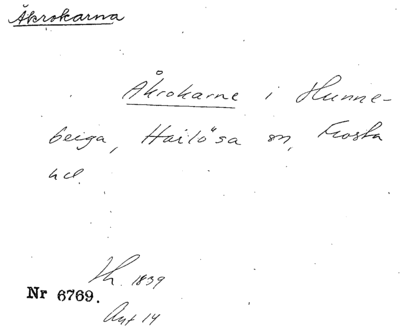 Åkrokarna
Åkrokarne i Hunne-
beiga, Hailösa sn, Frosta
hd.
Th. 1839
Nr 6769.
Avt 14